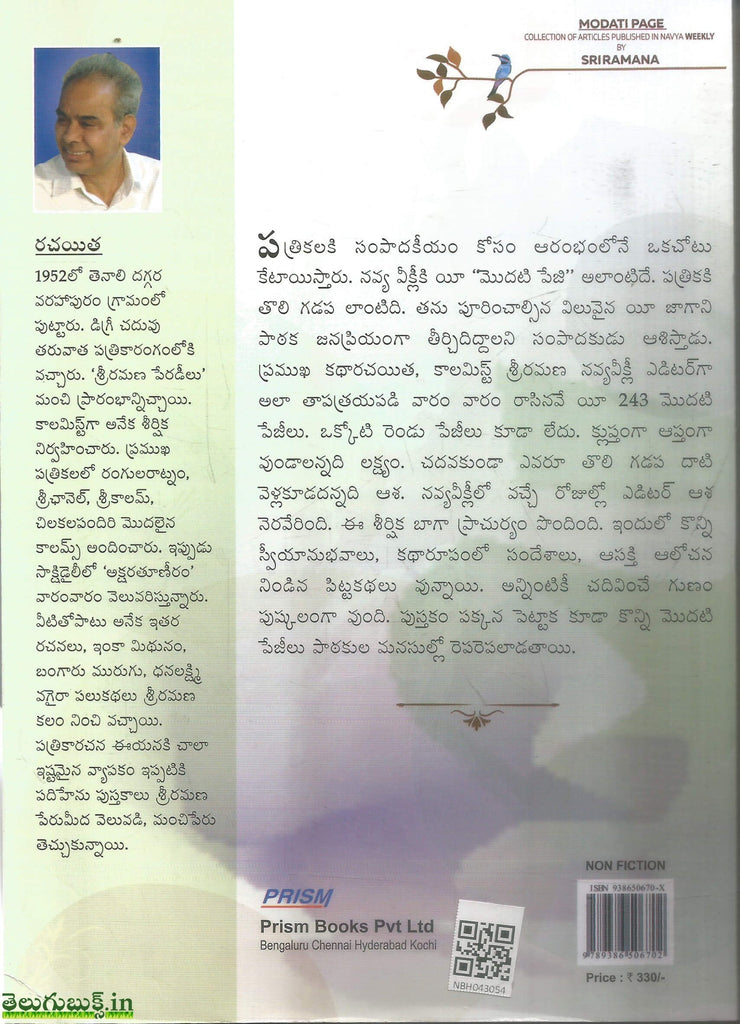 MODATI PAGE
COLLECTION OF ARTICLES PUBLISHED IN NAVYA WEEKLY
BY
SRIRAMANA
రచయిత
1952లో తెనాలి దగ్గర
వరహాపురం గ్రామంలో
పుట్టారు. డిగ్రీ చదువు
తరువాత పత్రికారంగంలోకి
వచ్చారు. 'శ్రీరమణ పేరడీలు'
మంచి ప్రారంభాన్నిచ్చాయి.
కాలమిస్ట్‌గా అనేక శీర్షిక
నిర్వహించారు. ప్రముఖ
పత్రికలలో రంగులరాట్నం,
శ్రీఛానెల్, శ్రీకాలమ్,
చిలకలపందిరి మొదలైన
కాలమ్స్ అందించారు. ఇప్పుడు
సాక్షిడైలీలో 'అక్షరతూణీరం'
వారంవారం వెలువరిస్తున్నారు.
వీటితోపాటు అనేక ఇతర
రచనలు, ఇంకా మిథునం,
బంగారు మురుగు, ధనలక్ష్మి
వగైరా పలుకథలు శ్రీరమణ
కలం నించి వచ్చాయి.
పత్రికారచన ఈయనకి చాలా
ఇష్టమైన వ్యాపకం ఇప్పటికి
పదిహేను పుస్తకాలు శ్రీరమణ
పేరుమీద వెలువడి, మంచిపేరు
తెచ్చుకున్నాయి.
పత్రికలకి సంపాదకీయం కోసం ఆరంభంలోనే ఒకచోటు
కేటాయిస్తారు. నవ్య వీక్లీకి యీ "మొదటి పేజి" అలాంటిదే. పత్రికకి
తొలి గడప లాంటిది. తను పూరించాల్సిన విలువైన యీ జాగాని
పాఠక జనప్రియంగా తీర్చిదిద్దాలని సంపాదకుడు ఆశిస్తాడు.
ప్రముఖ కథారచయిత, కాలమిస్ట్ శ్రీరమణ నవ్యవీక్లీ ఎడిటర్‌గా
అలా తాపత్రయపడి వారం వారం రాసినవే యీ 243 మొదటి
పేజీలు. ఒక్కోటి రెండు పేజీలు కూడా లేదు. క్లుప్తంగా ఆప్తంగా
వుండాలన్నది లక్ష్యం. చదవకుండా ఎవరూ తొలి గడప దాటి
వెళ్లకూడదన్నది ఆశ. నవ్యవీక్లీలో వచ్చే రోజుల్లో ఎడిటర్ ఆశ
నెరవేరింది. ఈ శీర్షిక బాగా ప్రాచుర్యం పొందింది. ఇందులో కొన్ని
స్వీయానుభవాలు, కథారూపంలో సందేశాలు, ఆసక్తి ఆలోచన
నిండిన పిట్టకథలు వున్నాయి. అన్నింటికీ చదివించే గుణం
పుష్కలంగా వుంది. పుస్తకం పక్కన పెట్టాక కూడా కొన్ని మొదటి
పేజీలు పాఠకుల మనసుల్లో రెపరెపలాడతాయి.
NON FICTION
ISBN 938650670-X
9789386506702
Price : ₹ 330/-
PRISM
Prism Books Pvt Ltd
Bengaluru Chennai Hyderabad Kochi
NBH043054
తెలుగుబుక్స్.in